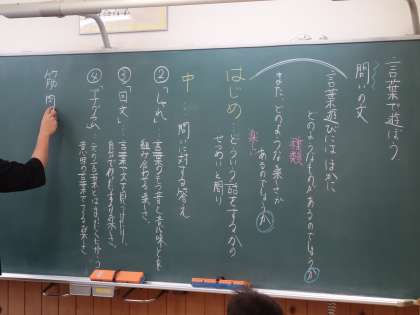 言葉で遊ぼう
問いの文
言葉遊びにはほかに
どのようなものがあるのでしょうか
種類
また、どのような楽しさが
あるのでしょうか
楽しさ
はじめ…どういう話をするかの
せつめいと問い
中…問いに対する答え
②「しゃれ」…言葉のもつ音と意味とを
組み合わせる楽しさ、
③「回文」…言葉や文を見つけたり、
自分で作ったりする楽しさ、
④「アナグラム」
元の言葉とはまったくちがう
意味の言葉を作る楽しさ、
筋肉